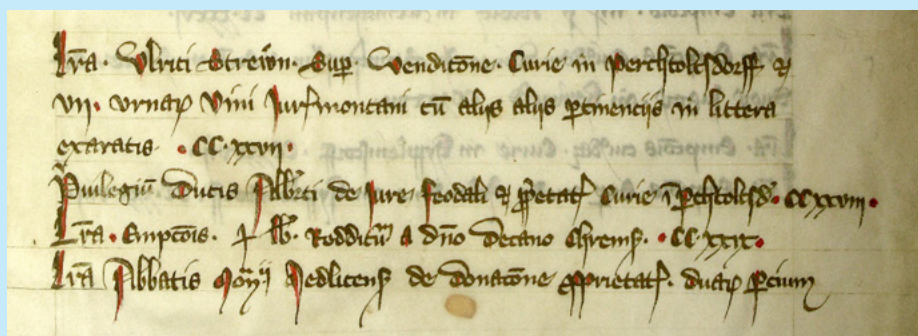 Lr̄a · Ulrici Strewn · Sup̱ · Vendic̄one · Curie in Perchtoltsdorff et
vii· urnaꝝ Vini Jurꝭmontani cū aliis aliis ꝑtinenciis in littera
exaratis · CC·xxvii ·
Pͥuilegiū Ducis Alb̄rti de Jure feodali et ꝓprietatꝭ Curie ī Perchtoltsdꝭ · CCxxviii ·
Lr̄a · Empc̄ois · lb̄ · Reddituū a dn̄o Decano Chremꝭ · CC·xxix ·
Lr̄a Abbatis Mōrii Zedlicensꝭ de donac̄one ꝓprietatꝭ · duaꝝ ꝑcium